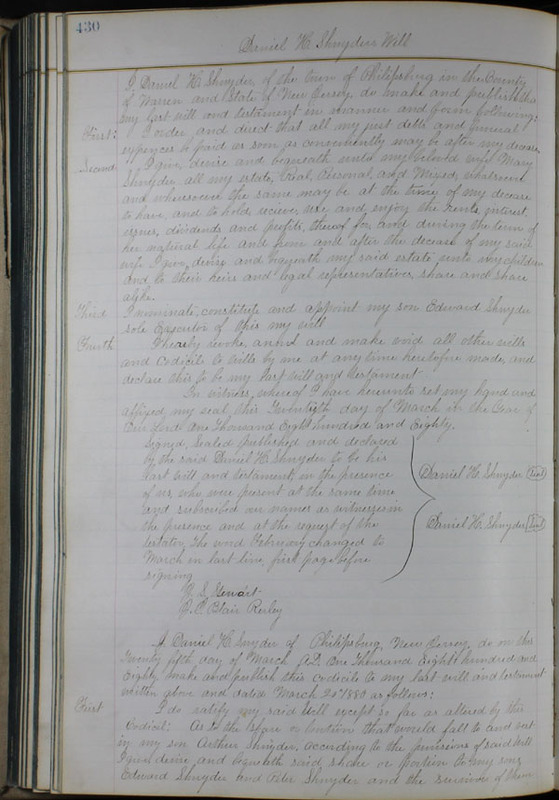 430
Daniel H. Shnyders Will
I, Daniel H. Shnyder, of the town of Philipsburg in the County
of Warren and State of New Jersey, do make and publish this
my last will and testament in manner and form following:
First: I order and direct that all my just debts and funeral
expences be paid as soon as conveniently may be after my decease.
Second I give, devise and bequeath unto my beloved wife Mary
Shnyder all my estate, Real, Personal, and Mixed, whatsoever
and wheresoever the same may be at the time of my decease
to have, and to hold, recieve, use and enjoy the rents, interest,
issues, dividends and profits, thereof for, and during the term of
her natural life and from and after the decease of my said
wife I give, devise and beqeath my said estate unto my children
and to their heirs and legal representatives, share and share
alike.
Third I nominate, constitute and appoint my son Edward Shnyder
sole Executor of this my will
Fourth I hereby revoke, annul and make void all other wills
and Codicils to Wills by me at any time heretofore made, and
declare this to be my last will and testament
In witness, whereof I have hereunto set my hand and
affixed my seal this Twentieth day of March in the Year of
Our Lord One Thousand Eight hundred and Eighty.
Signed, Sealed published and declared
by the said Daniel H. Shnyder to be his
last will and testament, in the presence
of us, who were present at the same time
and subscribed our names as witnesses in
the presence and at the request of the
testator, The word February changed to
March in last line, first page before
signing
Daniel H. Shnyder (Seal)
Daniel H. Shnyder (Seal)
S. Stewart
Blair Reiley
I, Daniel H. Snyder of Philipsburg, New Jersey, do on this
Twenty fifth day of March A.D. One Thousand Eight hundred and
Eighty make and publish this codicils to my last will and testament
written above and dated March 20" 1880 as follows:
First I do ratify my said Will except so far as altered by this
Codicil: As to the share or portion that would fall to and vest
in my son Arthur Shnyder, according to the provisions of said Will
I give devise, and bequeath said share or portion to my sons
Edward Shnyder and Peter Shnyder and the survivor of them